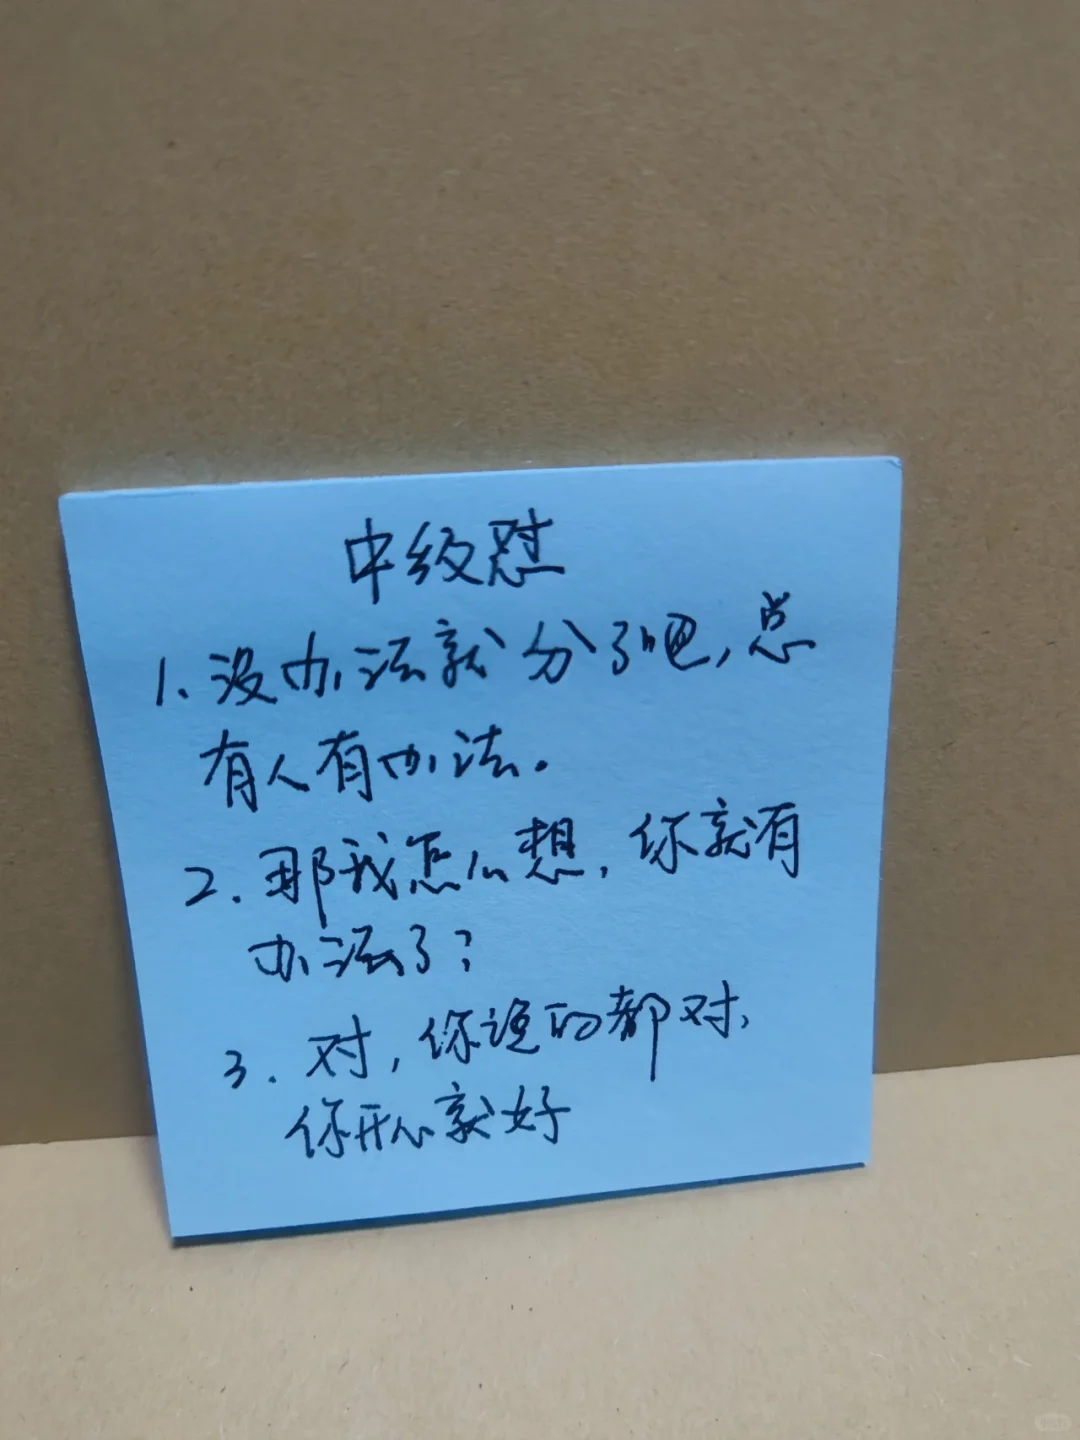 中级怼
1、没办法就分了吧,总
有人有办法。
2. 那我怎么想,你就有
办法了?
3. 对,你说的都对、
你开心就好